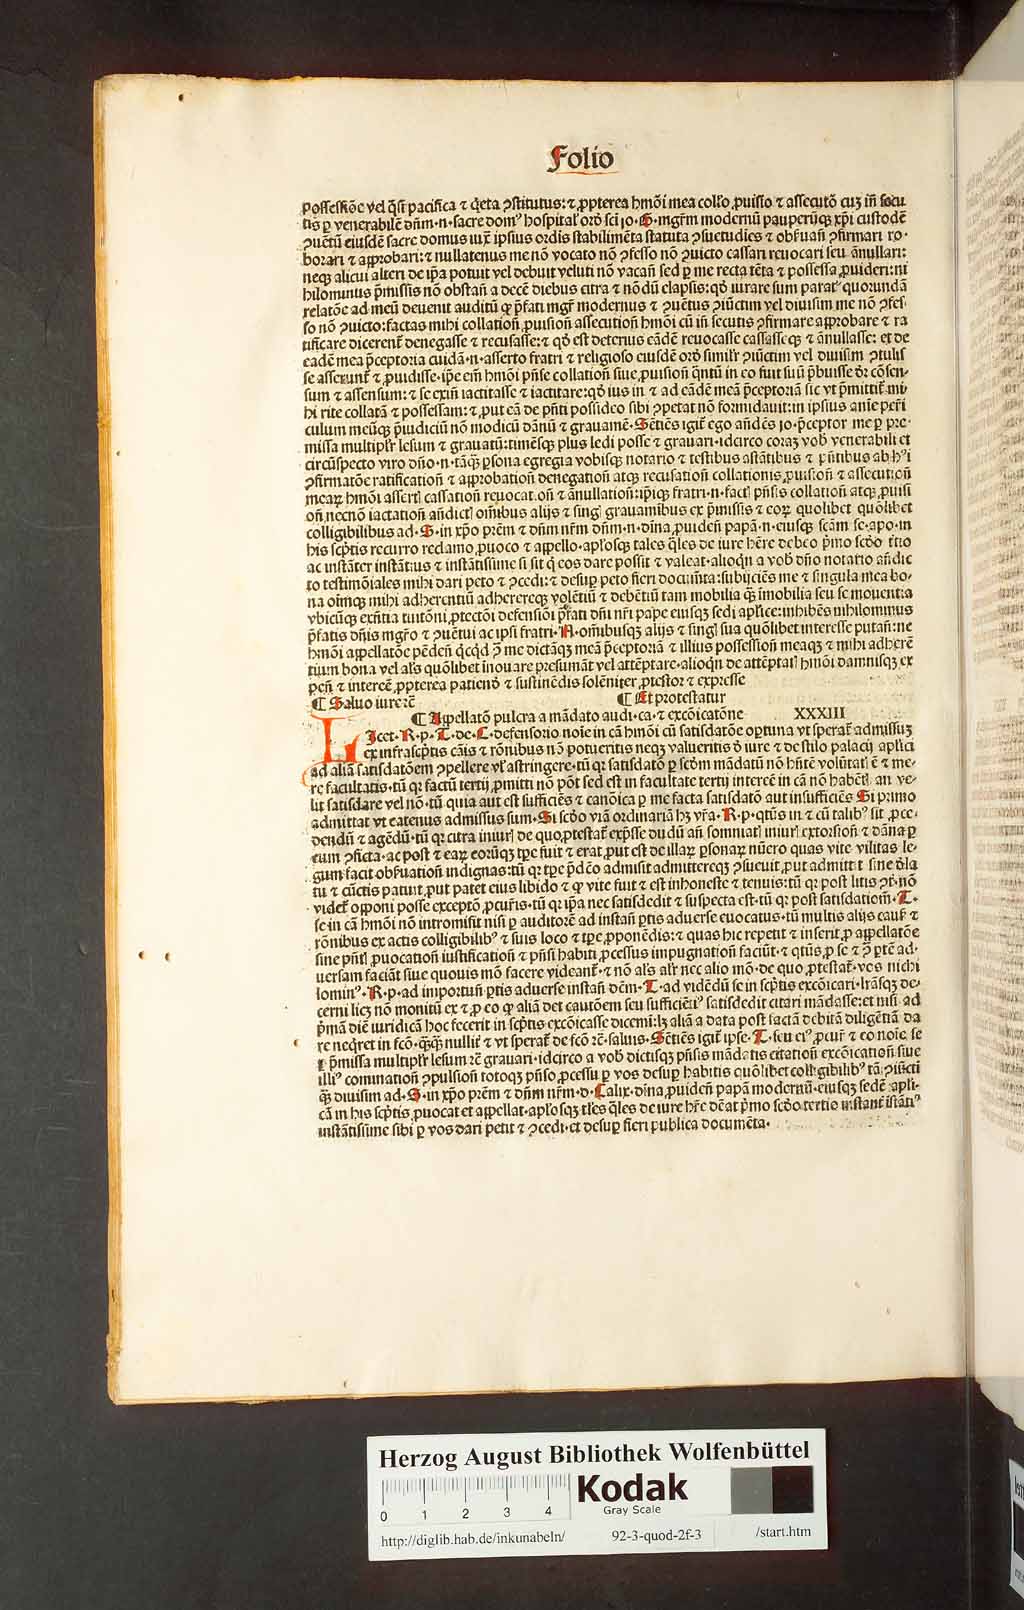 Folio
possessiōe vel q̃si pacifica ⁊ q̇eta ꝯstitutus: ⁊ ꝓpterea hm̄oi mea coll'o ꝓuisio ⁊ assecutō cuꝫ in̄ secu
tis ꝑ venerabilē dn̄m·n·sacre dom⁹ hospital' ord̄ sci jo·G·mgr̄m modernū pauperūqꝫ xp̄i custodē
ꝯuētū eiusdē sacre domus iux̄ ipsius ordīs stabilimēta statuta ꝯsuetudīes ⁊ obẜuan̄ ꝯfirmari ro·
borari ⁊ approbari: ⁊ nullatenus me nō vocato nō ꝯfesso nō ꝯuicto cassari reuocari seu ānullari:
neqꝫ alicui alteri de ip̄a potuit vel debuit veluti nō vacan̄ sed ꝑ me recta tēta ⁊ possessa ꝓuideri: ni
hilominus p̄missis nō obstan̄ a decē diebus citra ⁊ nōdū elapsis: qd̄ iurare sum parat⁹ quorundā
relatōe ad meū deuenit auditū ꝙ p̄fati mgr̄ modernus ⁊ ꝯuētus ꝯiūctim vel diuisim me nō ꝯfes
so nō ꝯuicto: factas mihi collation̄ ꝓuision̄ assecution̄ hm̄oi cū in̄ secutis ꝯfirmare approbare ⁊ ra
tificare dicerent̄ denegasse ⁊ recusasse: ⁊ qd̄ est deterius eādē reuocasse cassasseqꝫ ⁊ ānullasse: et de
eādē mea p̄ceptoria cuidā·n·asserto fratri ⁊ religioso eiusdē ord̄ simil'r ꝯiūctim vel diuisim ꝯtulis
se asserunt̄ ⁊ ꝓuidisse·ip̄e em̄ hm̄oi p̄nse collation̄ siue ꝓuision̄ q̄ntū in eo fuit suū p̄buisse dr̄ cōsen·
sum ⁊ assensum: ⁊ se exin̄ iactitasse ⁊ iactitare: qd̄ ius in ⁊ ad eādē meā p̄ceptoriā sic vt p̄mittit̄ mi
hi rite collatā ⁊ possessam: ⁊ ꝓut eā de p̄nti possideo sibi ꝯpetat nō formidauit: in ipsius anīe peri
culum meūqꝫ p̄iudiciū nō modicū dānū ⁊ grauamē·Sētiēs igit̄ ego an̄dēs jo·p̄ceptor me ꝑ pre·
missa multipl'r lesum ⁊ grauatū: timēsqꝫ plus ledi posse ⁊ grauari·idcirco coraꝫ vob̄ venerabili et
circūspecto viro dn̄o·n·tāqꝫ ꝑsona egregia vobisqꝫ notario ⁊ testibus astātibus ⁊ p̄ntibus ab h⁹i
ꝯfirmatōe ratification̄ ⁊ approbation̄ denegation̄ atqꝫ recusation̄ collationis ꝓuision̄ ⁊ assecution̄
mearꝫ hm̄oi assert̄ cassation̄ reuocation̄ ⁊ ānullation̄: ip̄iqꝫ fratri·n·fact̄ p̄nsis collation̄ atqꝫ ꝓuisi
on̄ necnō iactation̄ an̄dict̄ om̄ibus alijs ⁊ singl̄ grauamibus ex p̄missis ⁊ eoꝝ quolibet quōlibet
colligibilibus ad·S·in xp̄o pr̄em ⁊ dn̄m nr̄m dn̄m·n·dīna ꝓuiden̄ papā·n·eiusqꝫ scām se·apo·in
his sc̄ptis recurro reclamo ꝓuoco ⁊ appello·apl'osqꝫ tales q̄les de iure hēre debeo p̄mo scd̄o t̄tio
ac instāter instāt̄ius ⁊ instātissime si sit q̇ eos dare possit ⁊ valeat·alioqn̄ a vob̄ dn̄o notario an̄dic
to testimōiales mihi dari peto ⁊ ꝯcedi: ⁊ desuꝑ peto fieri docum̄ta: subijciēs me ⁊ singula mea bo·
na oīmqꝫ mihi adherentiū adherereqꝫ volētiū ⁊ debētiū tam mobilia q̄ꝫ īmobilia seu se mouent:a
vbicūqꝫ exn̄tia tuitōni ꝓtectōi defensiōi p̄fati dn̄i nr̄i pape eiusqꝫ sedi apl'ice: inhibēs nihilominus
p̄fatis dn̄is mgr̄o ⁊ ꝯuētui ac ipsi fratri·N·om̄ibusqꝫ alijs ⁊ singl̄ sua quōlibet interesse putan̄: ne
hm̄oi appellatōe pēden̄ q̇cq̇d ꝯ̄ me dictāqꝫ meā p̄ceptoriā ⁊ illius possession̄ meaqꝫ ⁊ mihi adherē
tium bona vel al's quōlibet inouare presumāt vel attēptare·alioqn̄ de attēptat̄ hm̄oi damnisqꝫ ex
pen̄ ⁊ intercē ꝓpterea patiend̄ ⁊ sustinēdis solēniter ꝓtestor ⁊ expresse
¶ Saluo iure rē ¶ Et protestatur
¶ Appellatō pulcra a mādato audi·ca·⁊ excōicatōne XXXIII
LIcet·R·p·T·de·C·defensorio noīe in cā hm̄oi cū satisdatōe optuna vt sperat̄ admissuꝫ
ex infrasc̄ptis cāis ⁊ rōnibus nō potueritis neqꝫ valueritis d̄ iure ⁊ de stilo palacij apl'ici
ad aliā satisdatōem ꝯpellere vl' astringere: tū q: satisdatō ꝑ scōm mādatū nō hn̄tē volūtat̄ ē ⁊ me·
re facultatis·tū q: factū tertij ꝓmitti nō pōt sed est in facultate tertij intercē in cā nō habēt̄ an ve·
lit satisdare vel nō·tū quia aut est sufficiēs ⁊ canōica ꝑ me facta satisdatō aut insufficiēs Si primo
admittat vt eatenus admissus sum·Si scd̄o viā ordinariā hꝫ vr̄a·R·p·qtūs in ⁊ cū talib⁹ sit ꝓce·
dendū ⁊ agēdū·tū q: citra iniur̄ de quo ꝓtestat̄ exp̄sse dudū an̄ somniat̄ iniur̄ extorsion̄ ⁊ dāna ꝑ
eum ꝯficta·ac post ⁊ eaꝝ eorūqꝫ tp̄e fuit ⁊ erat ꝓut est de illaꝝ ꝑsonaꝝ nūero quas vite vilitas le·
gum facit obẜuation indignas: tū q: tp̄e p̄dc̄o admisit admittereqꝫ ꝯsueuit ꝓut admittit sine d̄la
tu ⁊ cūctis patuit ꝓut patet eius libido ⁊ ꝙ vite fuit ⁊ est inhoneste ⁊ tenuis: tū q: post litis ꝯt̄·nō
videt̄ opponi posse exceptō ꝓcur̄is·tū q: ip̄a nec satisdedit ⁊ suspecta est·tū q: post satisdatiom̄·T·
se in cā hm̄oi nō intromisit nisi ꝑ auditorē ad instan̄ ꝑtis aduerse euocatus·tū multis alijs caus̄ ⁊
rōnibus ex actis colligibilib⁹ ⁊ suis loco ⁊ tp̄e ꝓponēdis: ⁊ quas hic repetit ⁊ inserit ꝓ appellatōe
sine p̄nt̄ ꝓuocation̄ iustification̄ ⁊ p̄nsi habiti ꝓcessus impugnation̄ faciūt·⁊ qtūs ꝓ se ⁊ ꝯ̄ ꝑtē ad·
uersam faciāt siue quouis mō facere videant̄·⁊ nō al's al'r nec alio mō·de quo ꝓtestat̄·vos nichi
lomin⁹·R·p·ad importun̄ ꝑtis aduerse instan̄ dc̄m·T·ad vidēdū se in sc̄ptis excōicari·lr̄āsqꝫ de·
cerni licꝫ nō monitū ex ⁊ ꝓ eo ꝙ aliā det cautōem seu sufficiēti⁹ satisdedit citari mādasse: et nisi ad
p̄mā diē iuridicā hoc fecerit in sc̄ptis excōicasse dicemi: lꝫ aliā a data post factā debitā diligētiā da
re neqret in fcō·q̄ꝫqꝫ nullit̄ ⁊ vt sperat̄ de fcō rē·saluis·Sētiēs igit̄ ipse·T·seu ei⁹ ꝓcur̄ ⁊ eo noīe se
ꝑ p̄missa multipl'r lesum rē grauari·idcirco a vob̄ dictisqꝫ p̄nsis mādatis citation̄ excōication̄ siue
illi⁹ comination̄ ꝯpulsion̄ totoqꝫ p̄nso ꝓcessu ꝑ vos desuꝑ habitis quōlibet colligibilib⁹ tā ꝯiūcti
q̄ꝫ diuisim ad·S·in xp̄o pr̄em ⁊ dn̄m nr̄m·d·Calix·dīna ꝓuiden̄ papā modernū·eiusqꝫ sedē apl'i·
cā in his sc̄ptis ꝓuocat et appellat·apl'osqꝫ tl'es q̄les de iure hr̄e dēat p̄mo scd̄o tertio instant̄ īstāti⁹
instātissime sibi ꝑ vos dari petit ⁊ ꝯcedi·et desuꝑ fieri publica documēta·
Herzog August Bibliothek Wolfenbüttel
0 1 2 3 4
Kodak
Gray Scale
http://diglib.hab.de/inkunabeln/ 92-3-quod-2f-3 /start.htm